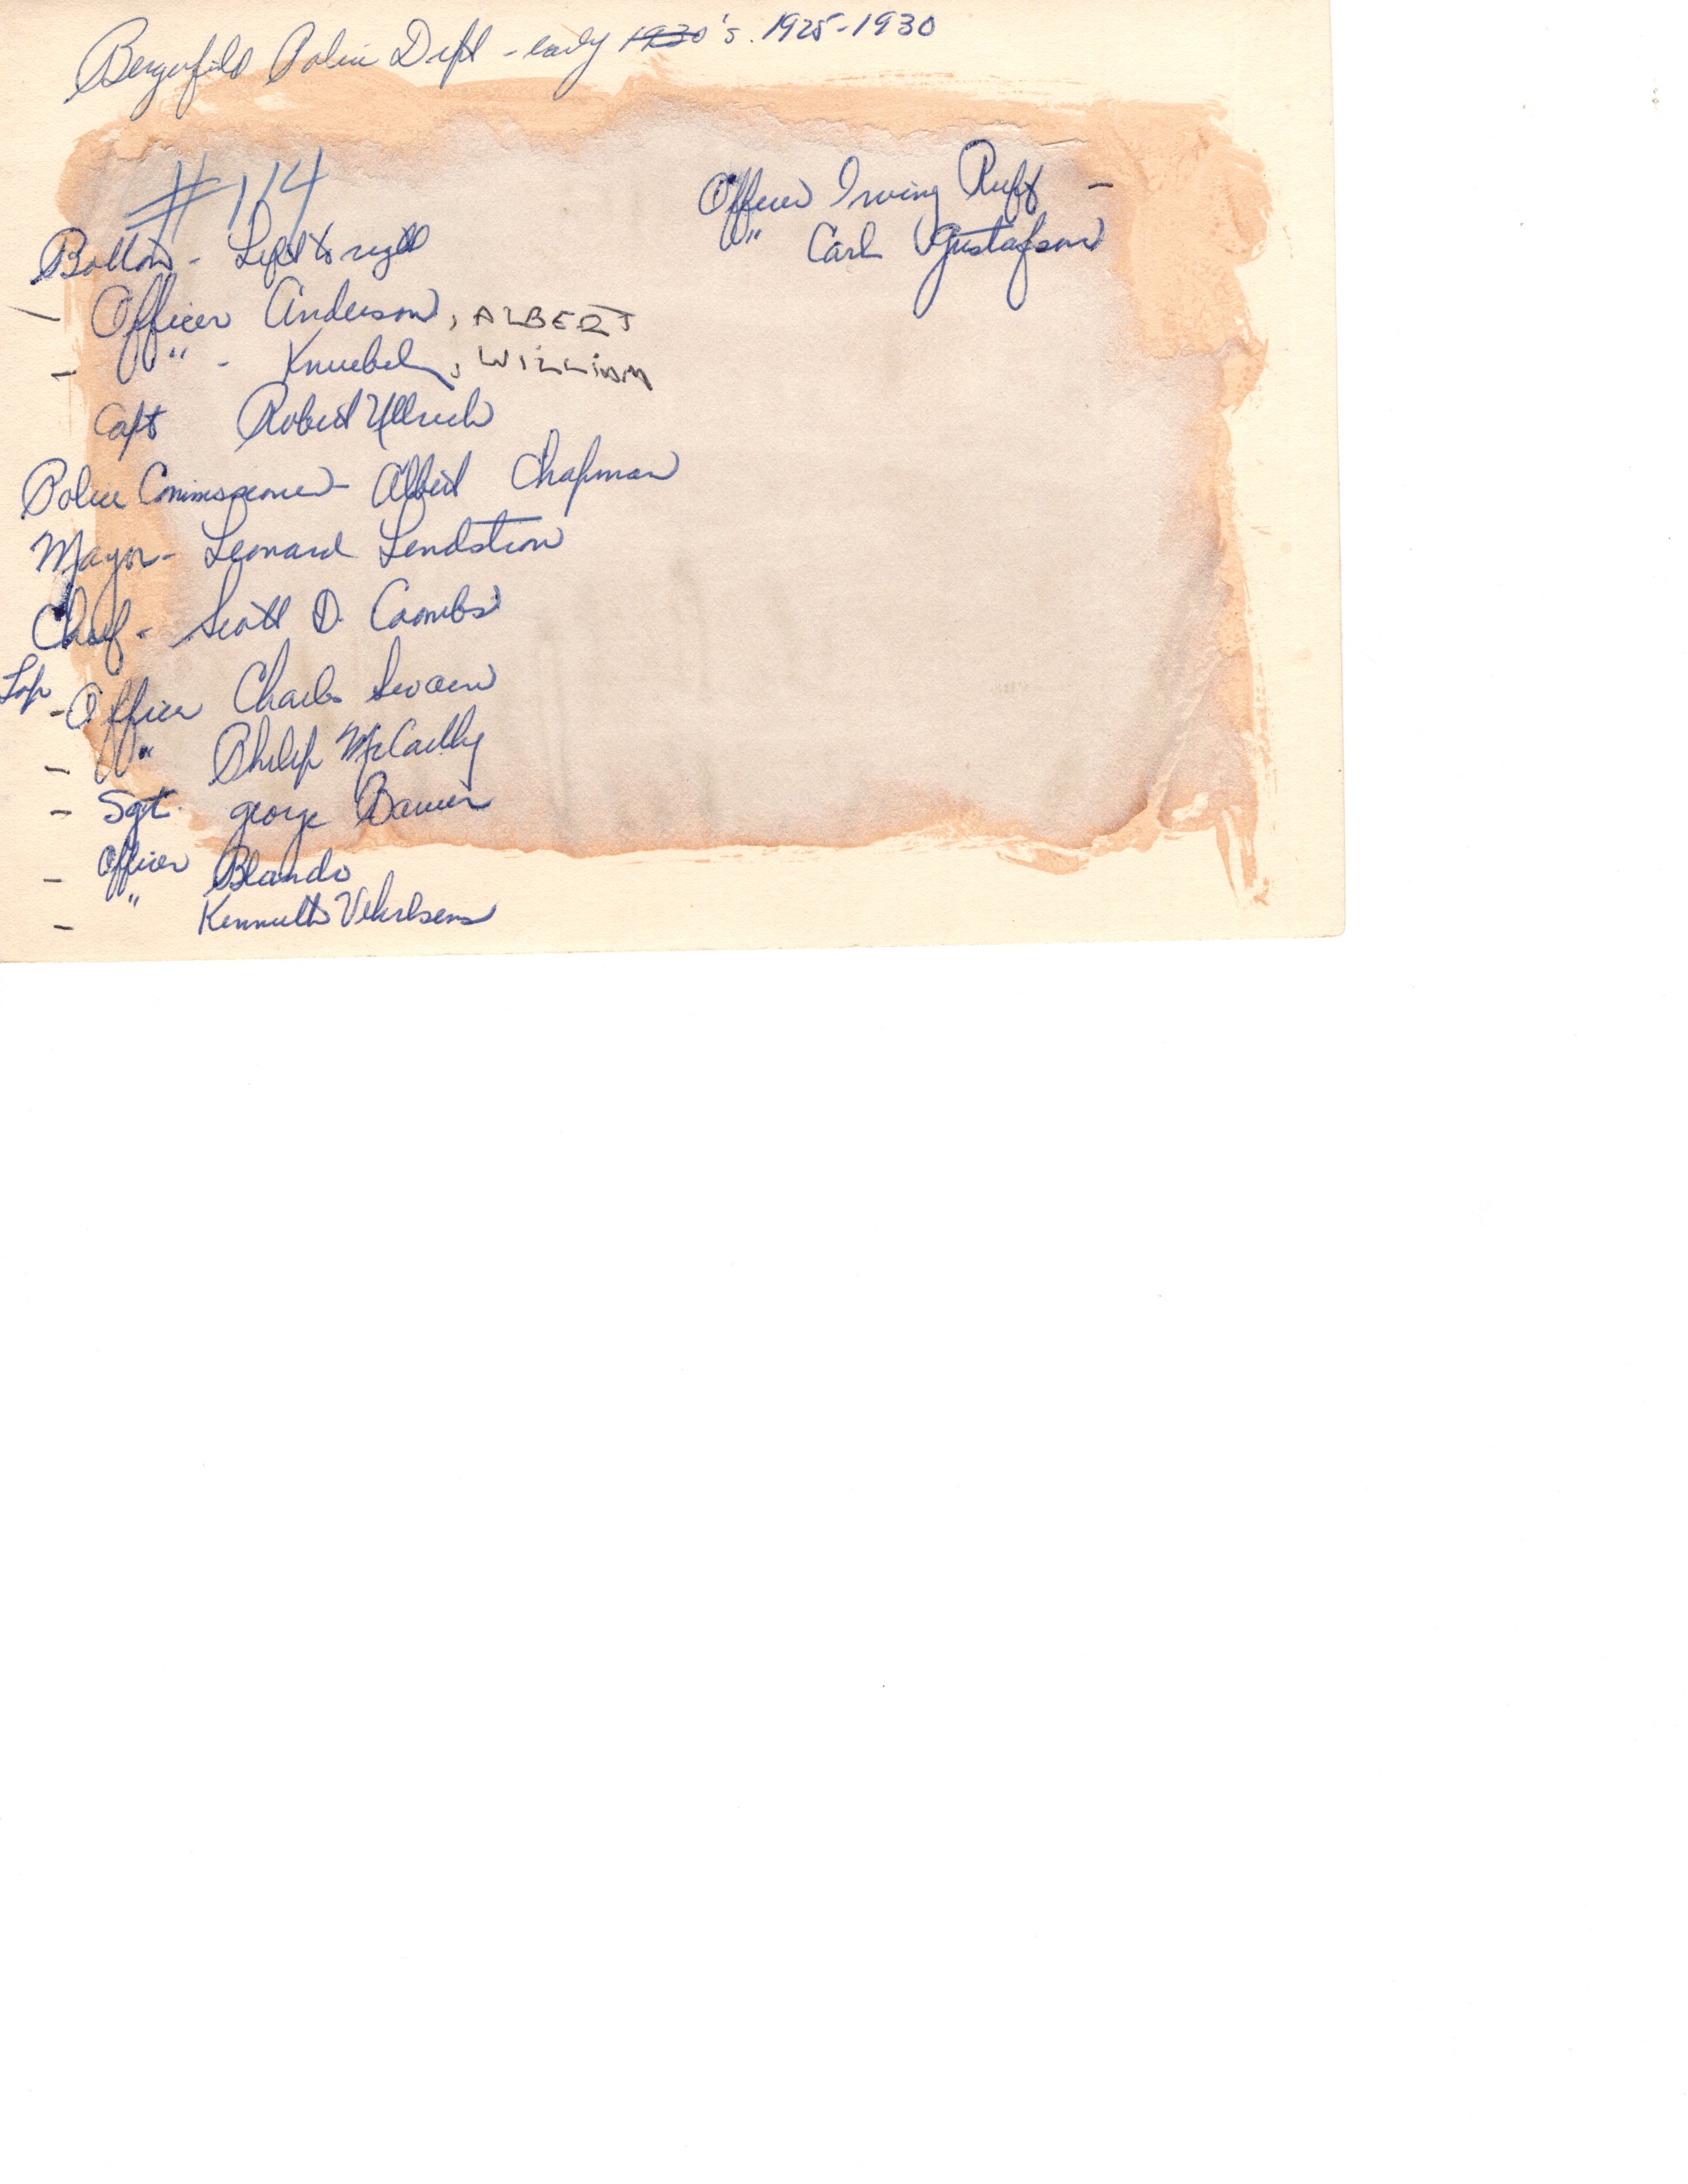 Bergenfield Police Dept - early 1930's. 1925-1930
#114
Bottom - Left to right
- Officer Anderson, ALBERT
- " - Knuebel, WILLIAM
Capt Robert Ullrich
Police Commissioner - Albert Chapman
Mayor - Leonard Lendstrom
Chief - Scott D. Coombs
Top
- Officer Charles Swain
- " Philip McCarthy
- Sgt. George Bauer
- Officer Blando
- " Kenneth
Officer Irving Ruff -
" Carl Gustafson